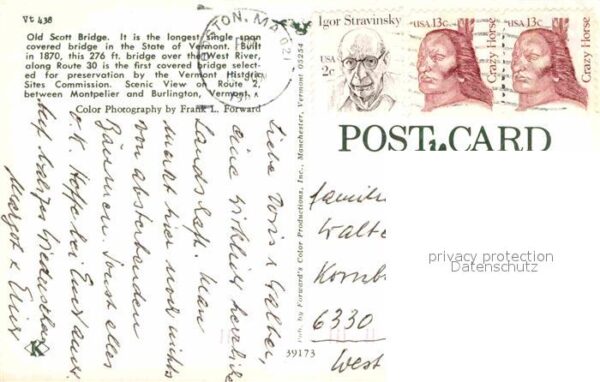 Vt 438
Old Scott Bridge. It is the longest single span
covered bridge in the State of Vermont. Built
in 1870, this 276 ft. bridge over the West River,
along Route 30 is the first covered bridge select-
ed for preservation by the Vermont Historic
Sites Commission. Scenic View on Route 2,
between Montpelier and Burlington, Vermont.
Color Photography by Frank L. Forward
Liebe Doris + Walter,
eine wirklich herrliche
Landschaft. Man
merkt hier noch nichts
von absterbenden
Bäumen. Sonst alles
o.K. Hoffe bei Euch auch.
Auf baldiges Wiedersehen
Margot +
Pub. by Forward's Color Productions, Inc., Manchester, Vermont 05254
39173
Igor Stravinsky
USA
2c
USA 13c
Crazy Horse
USA 13c
Crazy Horse
POST CARD
Familie
Walte
Kornb
6330
West
privacy protection
Datenschutz
K